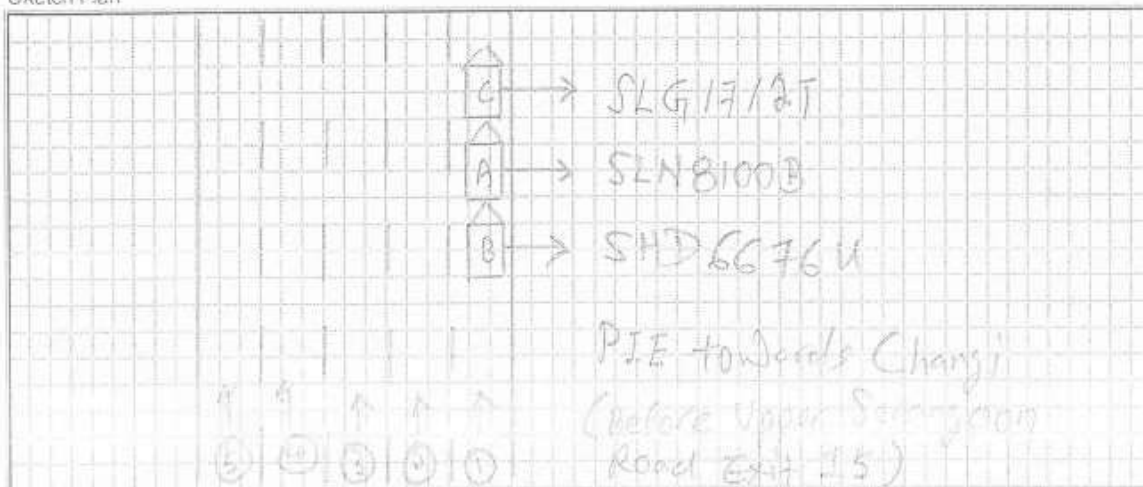 Sketch Plan
C → SLG1712T
A → SLN8100B
B → SHD6676U
PIE towards Changi
(Before Upper Serangoon
Road Exit 15)
5 4 3 2 1